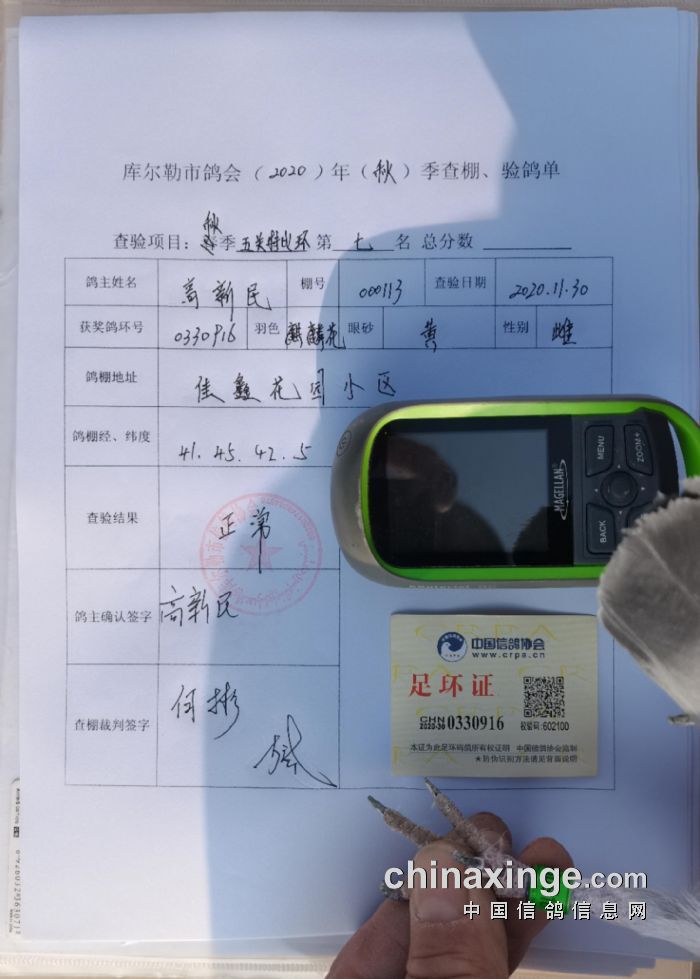 库尔勒市鸽会（2020）年（秋）季查棚、验鸽单
查验项目：秋季五关特比环 第 七 名 总分数
鸽主姓名 高新民 棚号 000113 查验日期 2020.11.30
获奖鸽环号 0330916 羽色 麒麟花 眼砂 黄 性别 雌
鸽棚地址 佳鑫花园小区
鸽棚经、纬度 41.45.42.5
查验结果 正常
鸽主确认签字 高新民
查棚裁判签字 何彬
MAGELLAN
MENU
ZOOM+
BACK
CRPA
中国信鸽协会
www.crpa.cn
足环证
CHN
2020-30 0330916
校验码:602100
本证为此足环码鸽所有权证明 中国信鸽协会监制
★防伪识别方法请见背面说明
chinaxinge.com
中国信鸽信息网